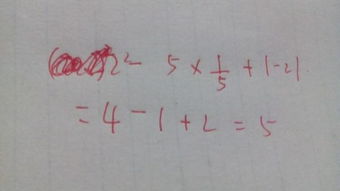 2² - 5 × 1/5 + |-2|
= 4 - 1 + 2 = 5